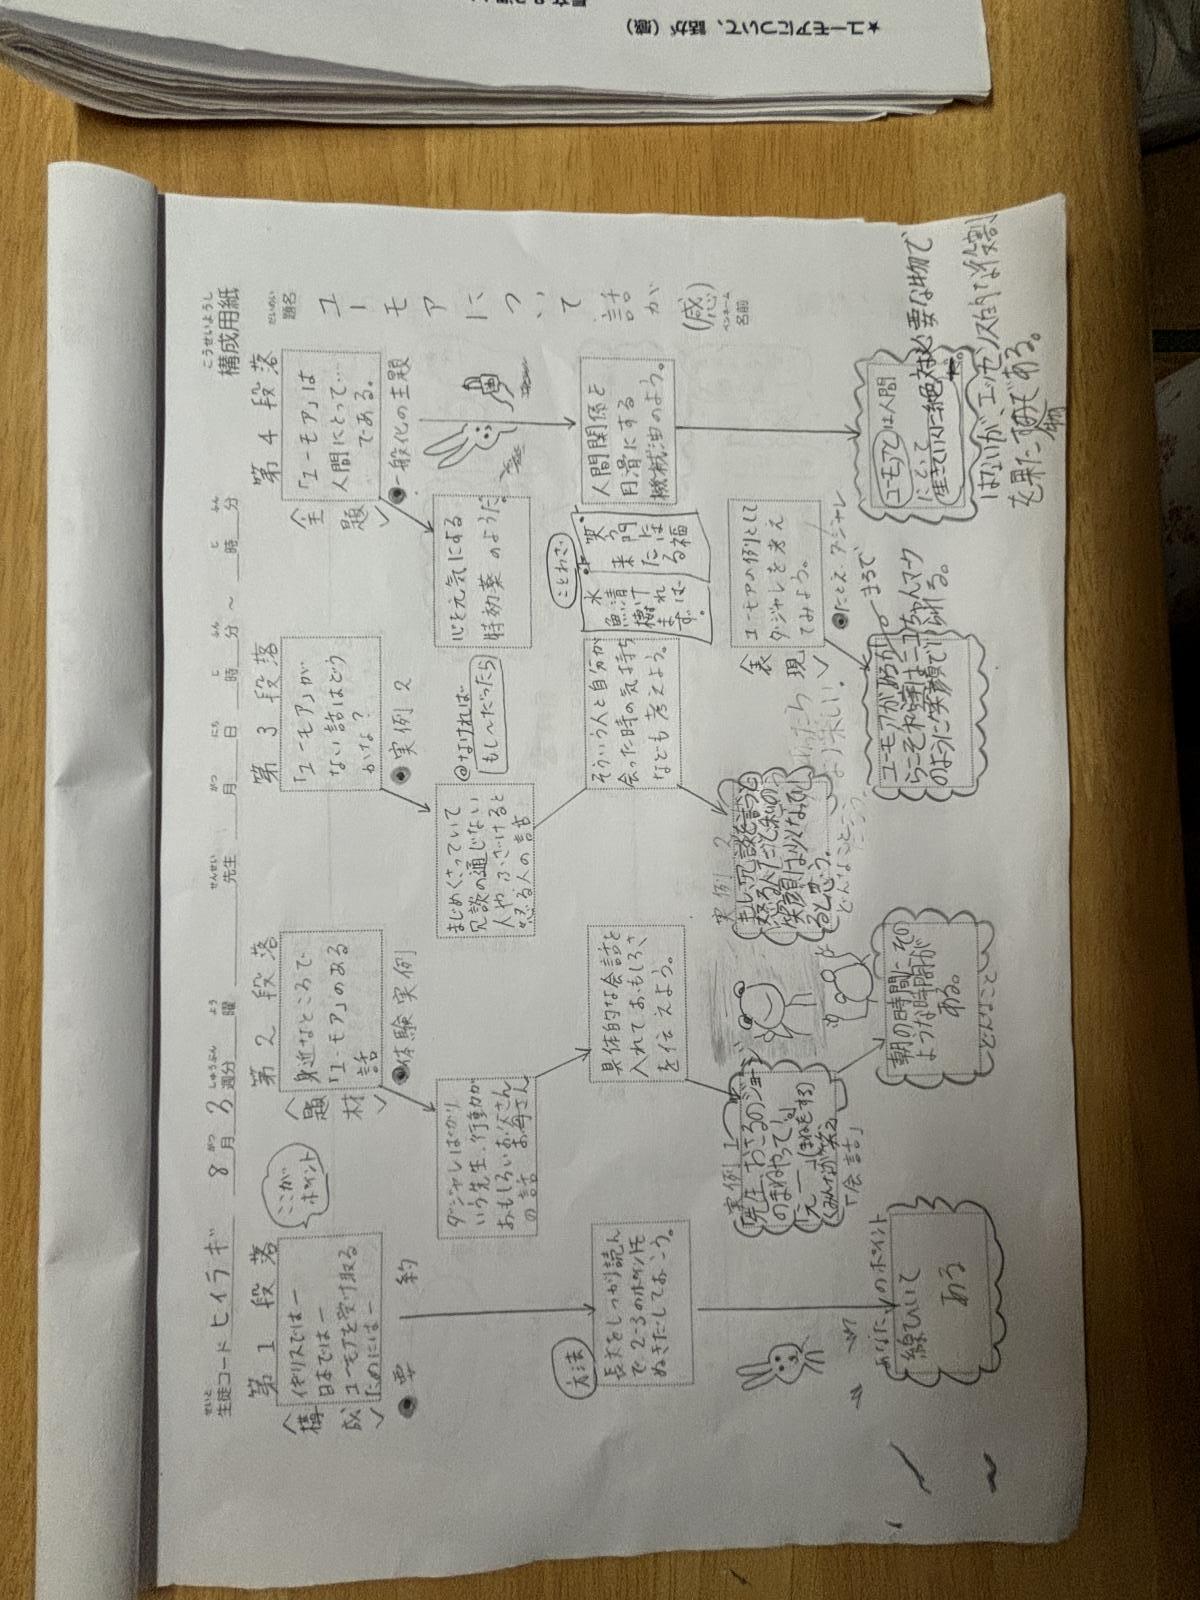 ★ユーモアについて、話が（感）
こうせいようし
構成用紙
だいめい
題名
ユーモアについて話が（感）
ペンネーム
名前
せいと
生徒コード ヒイラギ 8 月 3 週分 曜 先生 月 日 時 分 〜 時 分
がつ しゅうぶん よう せんせい がつ にち じ ふん じ ふん
第1段落
〈構成〉
イギリスでは—
日本では—
ユーモアを受け取る
ためには—
ここが
ポイント
●要約
方法
長文をしっかり読ん
で、2〜3のポイントを
ぬきだしておこう。
あなたのポイント
線ひいて
ある
第2段落
〈題材〉
身近なところで
「ユーモア」のある
話
●体験実例
ダジャレばかり
いう先生、行動が
おもしろいお父さん
お母さん
の話
具体的な会話を
入れておもしろさ
を伝えよう。
実例1
「先生、おさるのジョージ
のまねやって」
「え—」(まねをする)
(みんなが笑う)
「会話」
朝の時間にその
ような時間が
ある。
どんなこと
第3段落
「ユーモア」が
ない話はどう
かな?
●実例2
@なければ
もし〜だったら
まじめくさっていて
冗談の通じない
人や、ふざけると
怒る人の話
そういう人と自分が
会った時の気持ち
なども考えよう。
実例2
もし、冗談を言うと
怒る人だったら
笑顔は少なくなる
と思う。
どんなこと
〈表現〉
ユーモアの例として
ダジャレを考え
てみよう。
●たとえ・ダジャレ
まるで
ユーモアがあるか
らこそ
のように笑顔でいられる。
第4段落
〈全題〉
「ユーモア」は
人間にとって…
である。
●一般化の主題
心を元気にする
特効薬のようだ。
ことわざ
笑う門には
福来たる
水清ければ
魚棲まず。
人間関係を
円滑にする
機械油のよう。
ユーモアとは人間
にとって
生きていくのに絶対必要な物で
はないが、エッセンス的な役割
を果たす物である。